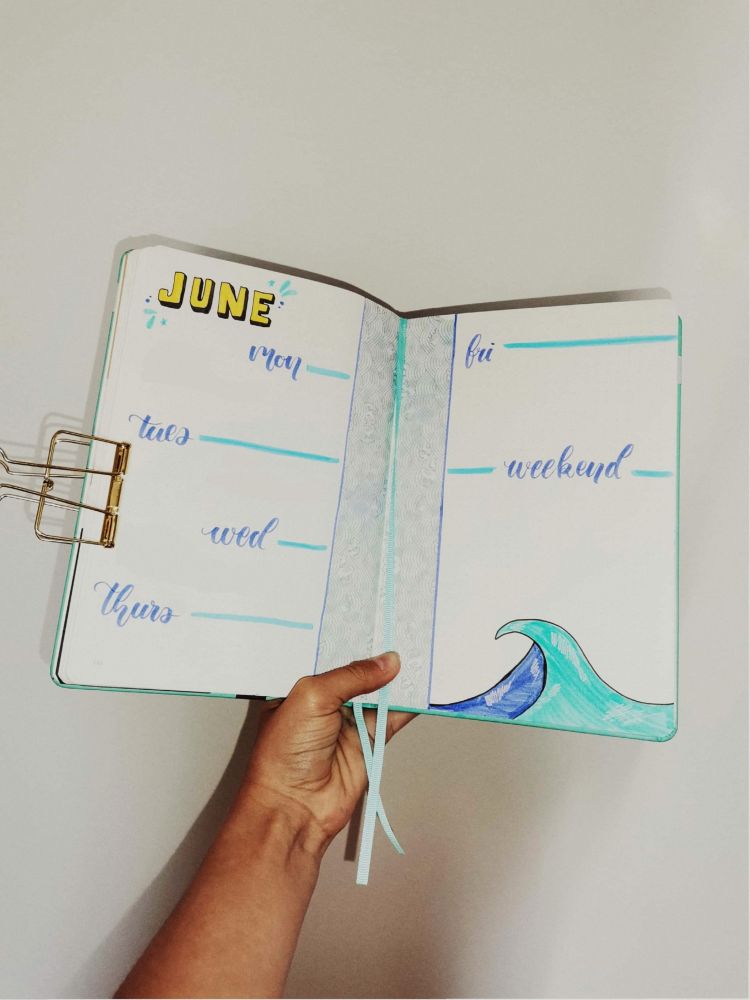 JUNE
mon
tues
wed
thurs
fri
weekend